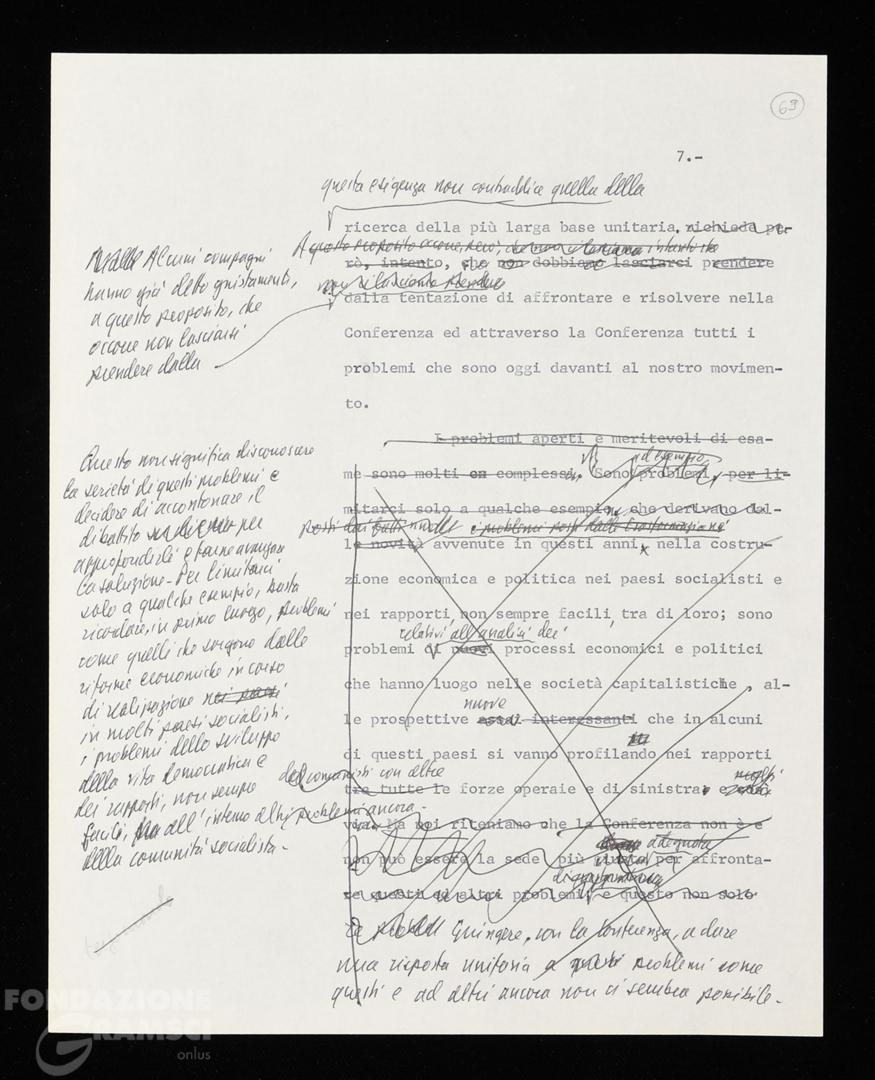 69
7.-
questa esigenza non contraddice quella della
ricerca della più larga base unitaria. richiede pe-
A questo proposito occorre, però,
rò, intanto, che non dobbiamo lasciarci prendere
non si lasciamo prendere
dalla tentazione di affrontare e risolvere nella
Conferenza ed attraverso la Conferenza tutti i
problemi che sono oggi davanti al nostro movimen-
to.
Alcuni compagni
hanno già detto giustamente,
a questo proposito, che
occorre non lasciarsi
prendere dalla
I problemi aperti e meritevoli di esa-
ad esempio,
me sono molti e complessi. Sono problemi, per li-
mitarci solo a qualche esempio, che derivano dal-
posti dai fatti nuovi e problemi posti dalle trasformazioni
le novità avvenute in questi anni, nella costru-
zione economica e politica nei paesi socialisti e
nei rapporti, non sempre facili, tra di loro; sono
relativi all'analisi dei
problemi di nuovi processi economici e politici
che hanno luogo nelle società capitalistiche, al-
nuove
le prospettive assai interessanti che in alcuni
di questi paesi si vanno profilando nei rapporti
dei comunisti con altre
tra tutte le forze operaie e di sinistra, e molti
altri problemi ancora.
via. Ma noi riteniamo che la Conferenza non è e
adeguata
non può essere la sede più giusta per affronta-
re questi ed altri problemi, e questo non solo
Giungere, con la Conferenza, a dare
una risposta unitaria a problemi come
questi e ad altri ancora non ci sembra possibile.
Questo non significa disconoscere
la serietà di questi problemi e
decidere di accantonare il
dibattito per
approfondirli e farne avanzare
la soluzione. Per limitarci
solo a qualche esempio, basta
ricordare, in primo luogo, problemi
come quelli che sorgono dalle
riforme economiche in corso
di realizzazione nei paesi
in molti paesi socialisti,
i problemi dello sviluppo
della vita democratica e
dei rapporti, non sempre
facili, all'interno
della comunità socialista.
FONDAZIONE
GRAMSCI
onlus